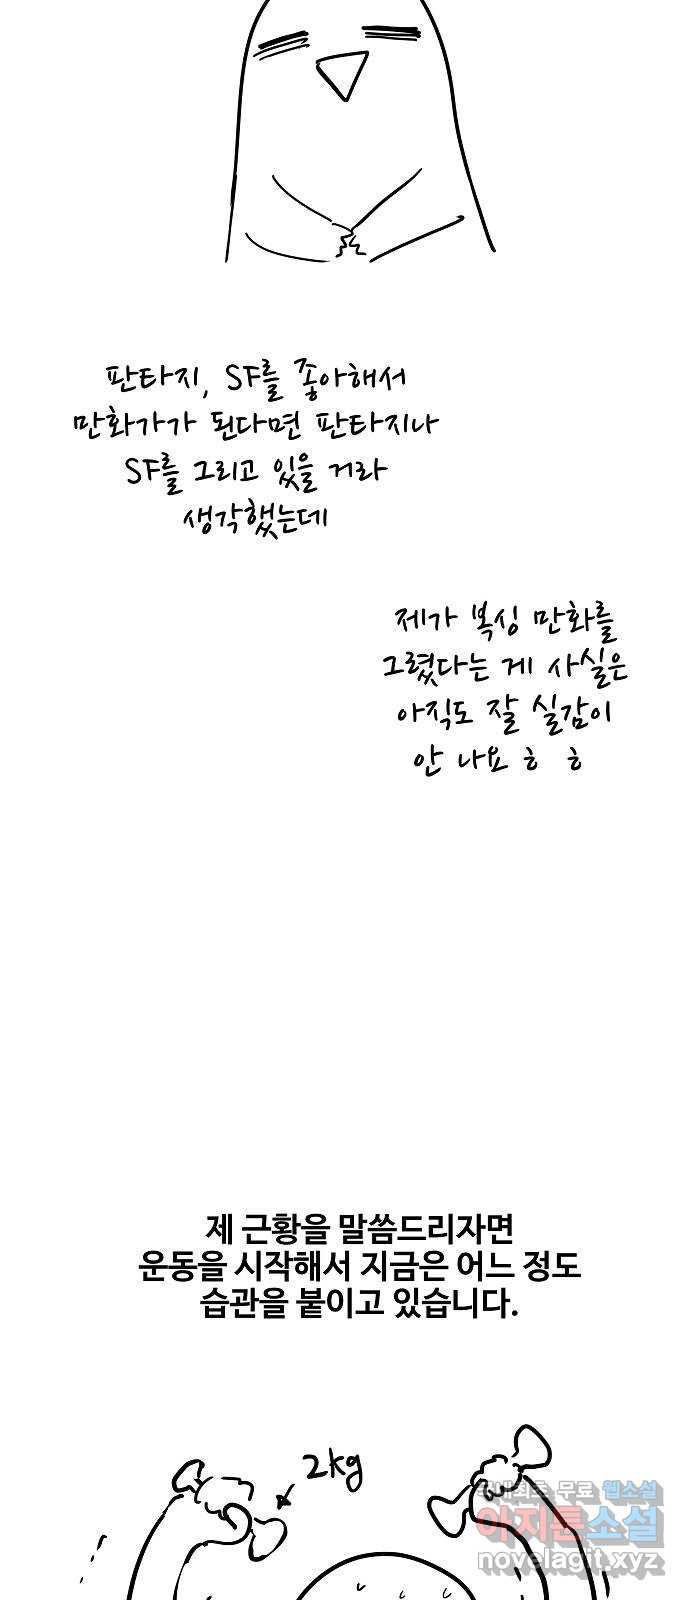 판타지, SF를 좋아해서
만화가가 된다면 판타지나
SF를 그리고 있을 거라
생각했는데
제가 복싱 만화를
그렸다는 게 사실은
아직도 잘 실감이
안 나요 ㅎ ㅎ
제 근황을 말씀드리자면
운동을 시작해서 지금은 어느 정도
습관을 붙이고 있습니다.
2kg
국내최초 무료 웹소설
아지툰소설
novelagit.xyz